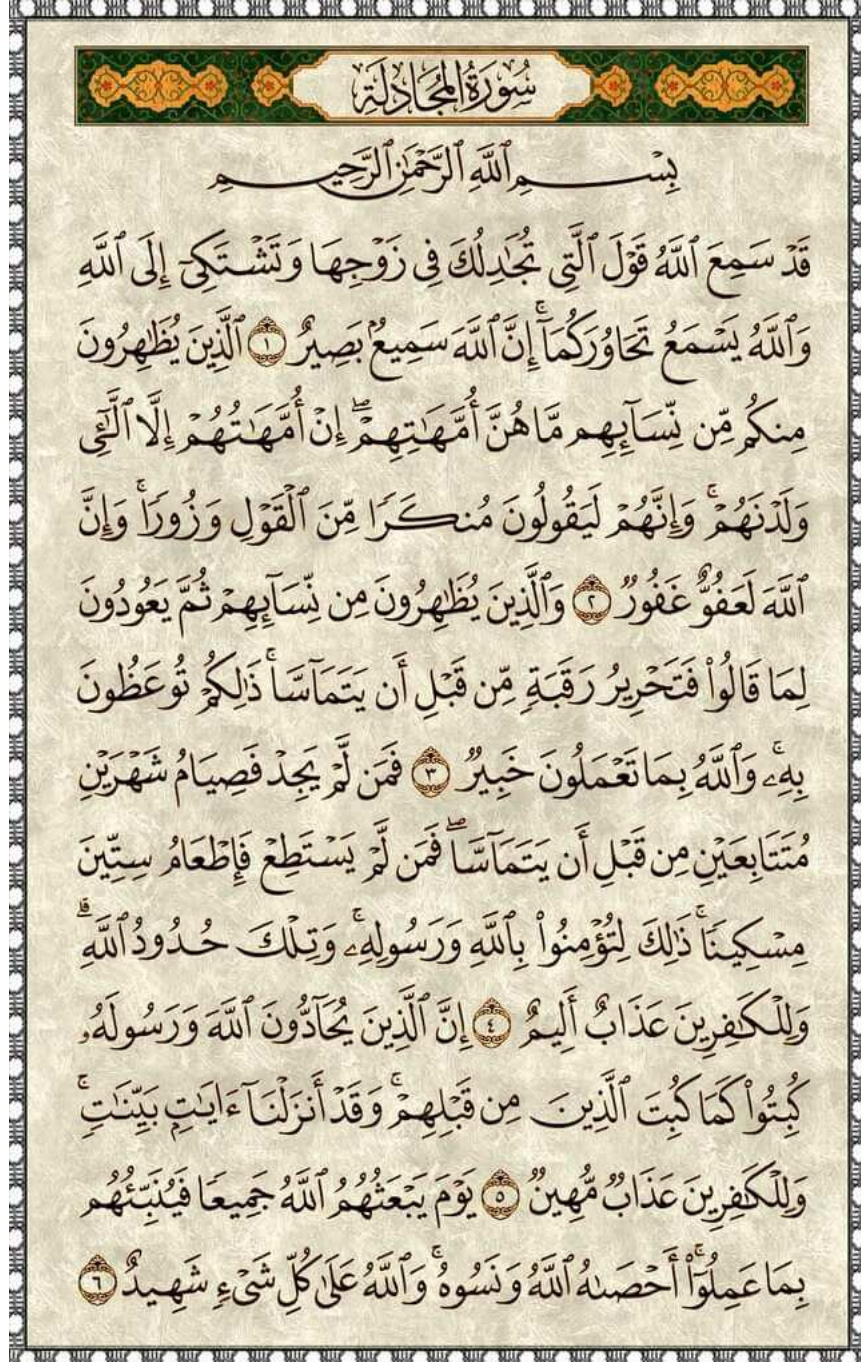 سُورَةُ المُجَادلَةِ
بِسْمِ ٱللَّهِ ٱلرَّحْمَٰنِ ٱلرَّحِيمِ
قَدْ سَمِعَ ٱللَّهُ قَوْلَ ٱلَّتِي تُجَٰدِلُكَ فِي زَوْجِهَا وَتَشْتَكِيٓ إِلَى ٱللَّهِ
وَٱللَّهُ يَسْمَعُ تَحَاوُرَكُمَآۚ إِنَّ ٱللَّهَ سَمِيعُۢ بَصِيرٌ ١ ٱلَّذِينَ يُظَٰهِرُونَ
مِنكُم مِّن نِّسَآئِهِم مَّا هُنَّ أُمَّهَٰتِهِمْۖ إِنْ أُمَّهَٰتُهُمْ إِلَّا ٱلَّٰٓـِٔي
وَلَدْنَهُمْۚ وَإِنَّهُمْ لَيَقُولُونَ مُنكَرًا مِّنَ ٱلْقَوْلِ وَزُورًاۚ وَإِنَّ
ٱللَّهَ لَعَفُوٌّ غَفُورٌ ٢ وَٱلَّذِينَ يُظَٰهِرُونَ مِن نِّسَآئِهِمْ ثُمَّ يَعُودُونَ
لِمَا قَالُوا۟ فَتَحْرِيرُ رَقَبَةٍ مِّن قَبْلِ أَن يَتَمَآسَّاۚ ذَٰلِكُمْ تُوعَظُونَ
بِهِۦۚ وَٱللَّهُ بِمَا تَعْمَلُونَ خَبِيرٌ ٣ فَمَن لَّمْ يَجِدْ فَصِيَامُ شَهْرَيْنِ
مُتَتَابِعَيْنِ مِن قَبْلِ أَن يَتَمَآسَّاۖ فَمَن لَّمْ يَسْتَطِعْ فَإِطْعَامُ سِتِّينَ
مِسْكِينًاۚ ذَٰلِكَ لِتُؤْمِنُوا۟ بِٱللَّهِ وَرَسُولِهِۦۚ وَتِلْكَ حُدُودُ ٱللَّهِۗ
وَلِلْكَٰفِرِينَ عَذَابٌ أَلِيمٌ ٤ إِنَّ ٱلَّذِينَ يُحَآدُّونَ ٱللَّهَ وَرَسُولَهُۥ
كُبِتُوا۟ كَمَا كُبِتَ ٱلَّذِينَ مِن قَبْلِهِمْۚ وَقَدْ أَنزَلْنَآ ءَايَٰتٍۭ بَيِّنَٰتٍۚ
وَلِلْكَٰفِرِينَ عَذَابٌ مُّهِينٌ ٥ يَوْمَ يَبْعَثُهُمُ ٱللَّهُ جَمِيعًا فَيُنَبِّئُهُم
بِمَا عَمِلُوٓا۟ۚ أَحْصَىٰهُ ٱللَّهُ وَنَسُوهُۚ وَٱللَّهُ عَلَىٰ كُلِّ شَيْءٍ شَهِيدٌ ٦